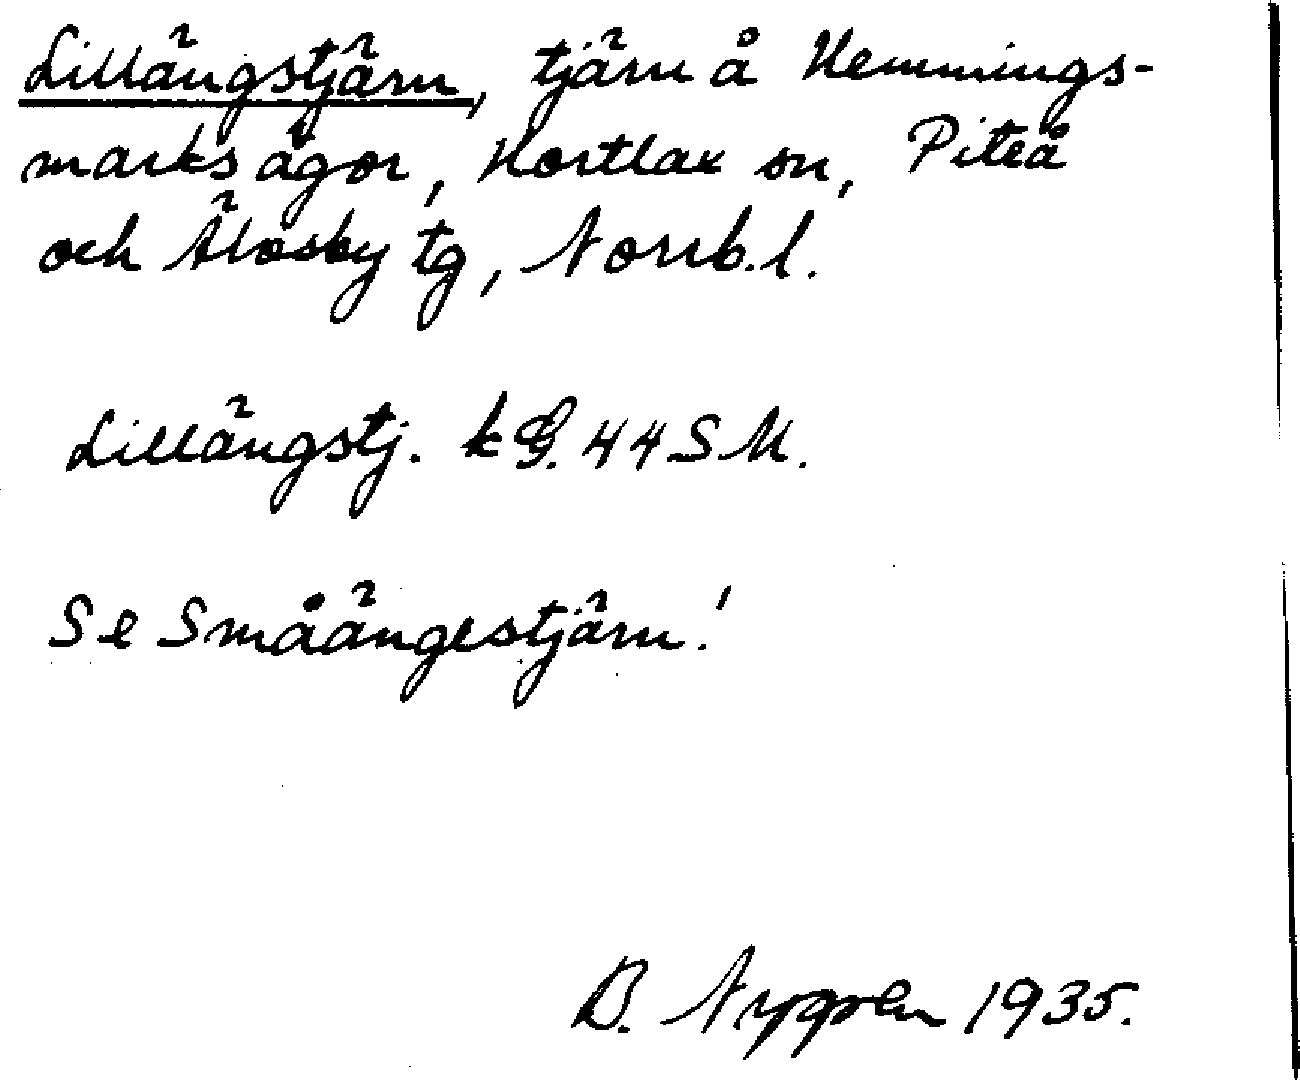 Lillängstjärn, tjärn å Hemmings-
marks ägor, Hortlax sn, Piteå
och Älvsby tg, Norrb.l.
Lillängstj. k G. 44 SM.
Se Småängestjärn!
B. Nygren 1935.